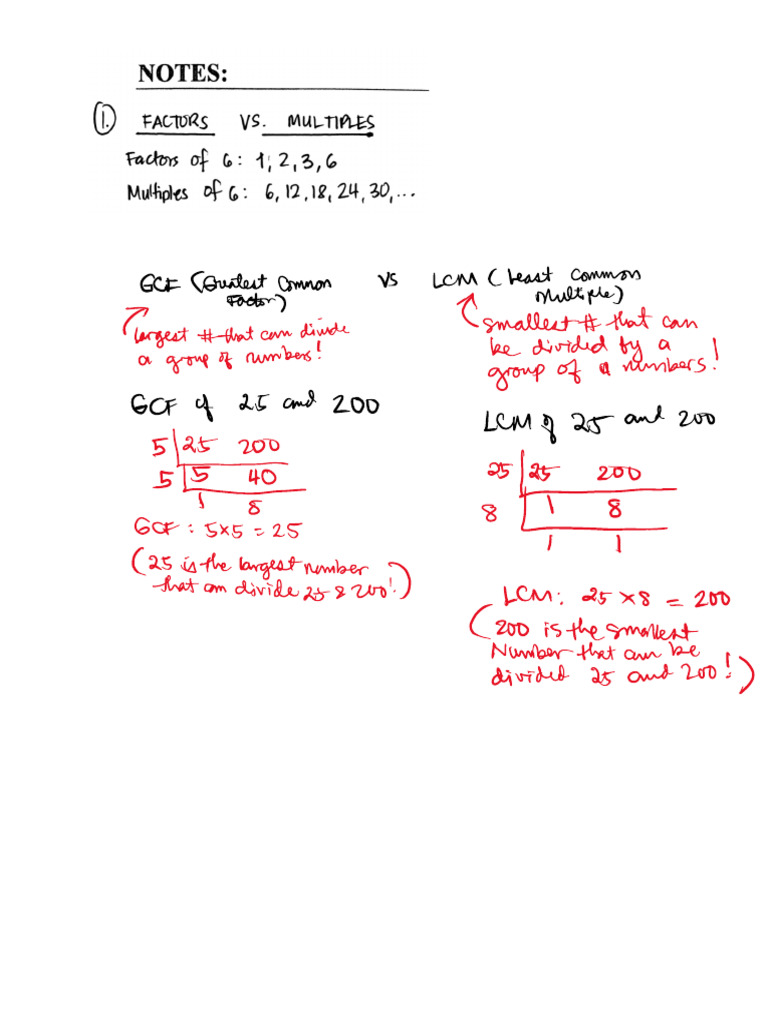 NOTES:
1. FACTORS VS. MULTIPLES
Factors of 6: 1, 2, 3, 6
Multiples of 6: 6, 12, 18, 24, 30, ...
GCF (Greatest Common
Factor)
vs
LCM (Least Common
Multiple)
largest # that can divide
a group of numbers!
smallest # that can
be divided by a
group of numbers!
GCF of 25 and 200
5 25 200
5 5 40
1 8
GCF: 5×5 = 25
(25 is the largest number
that can divide 25 & 200!)
LCM of 25 and 200
25 25 200
8 1 8
1 1
LCM: 25 × 8 = 200
(200 is the smallest
Number that can be
divided 25 and 200!)